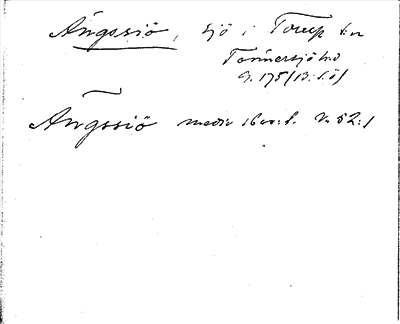 Ängssiö, sjö i Torup sn
Tönnersjö hd
G. 175 (13: S.Ö)
Ängssiö medio 1600:t. N. 52:1